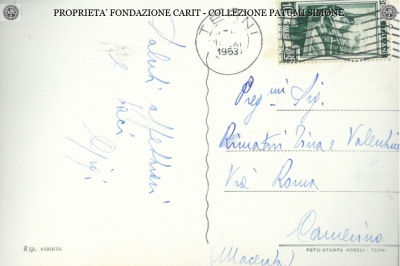 PROPRIETA' FONDAZIONE CARIT - COLLEZIONE PATUMI SIMONE
TERNI
1953
Saluti affettuosi
e baci
Gigi
Preg.mi Sig.
Rimatori Tina e Valentino
Via Roma
Camerino
(Macerata)
Rip. vietata
FOTO-STAMPA ANGELI - TERNI